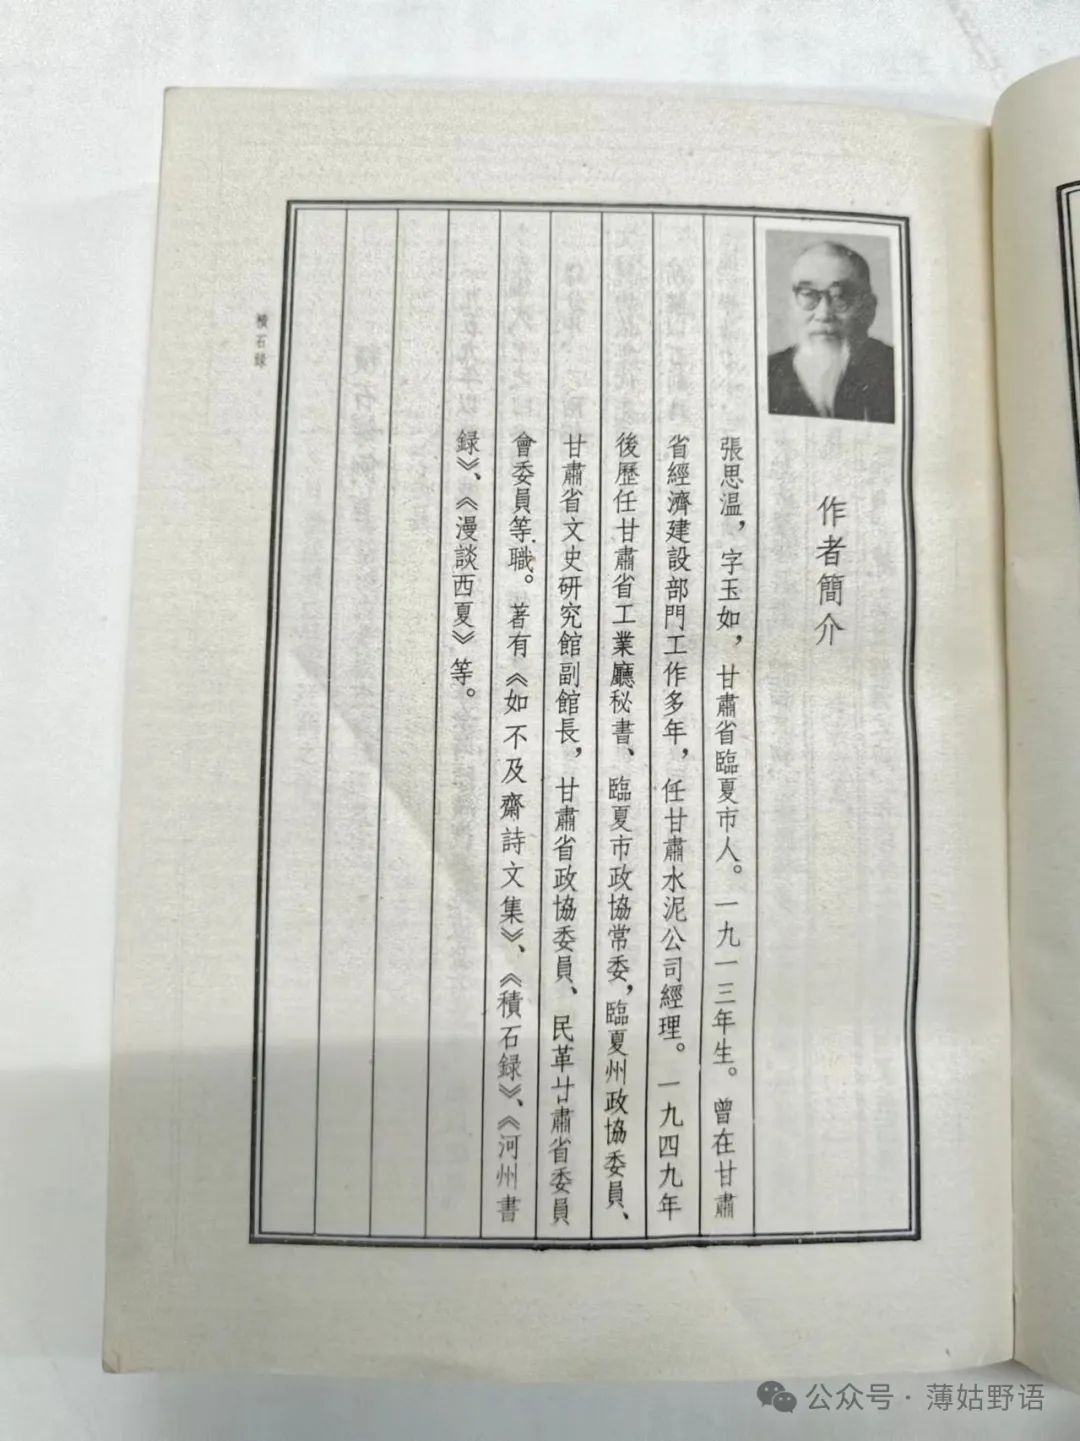 作者簡介
張思温，字玉如，甘肅省臨夏市人。一九一三年生。曾在甘肅
省經濟建設部門工作多年，任甘肅水泥公司經理。一九四九年
後歷任甘肅省工業廳秘書、臨夏市政協常委，臨夏州政協委員、
甘肅省文史研究館副館長，甘肅省政協委員、民革甘肅省委員
會委員等職。著有《如不及齋詩文集》、《積石録》、《河州書
録》、《漫談西夏》等。
積石録
公众号·薄姑野语